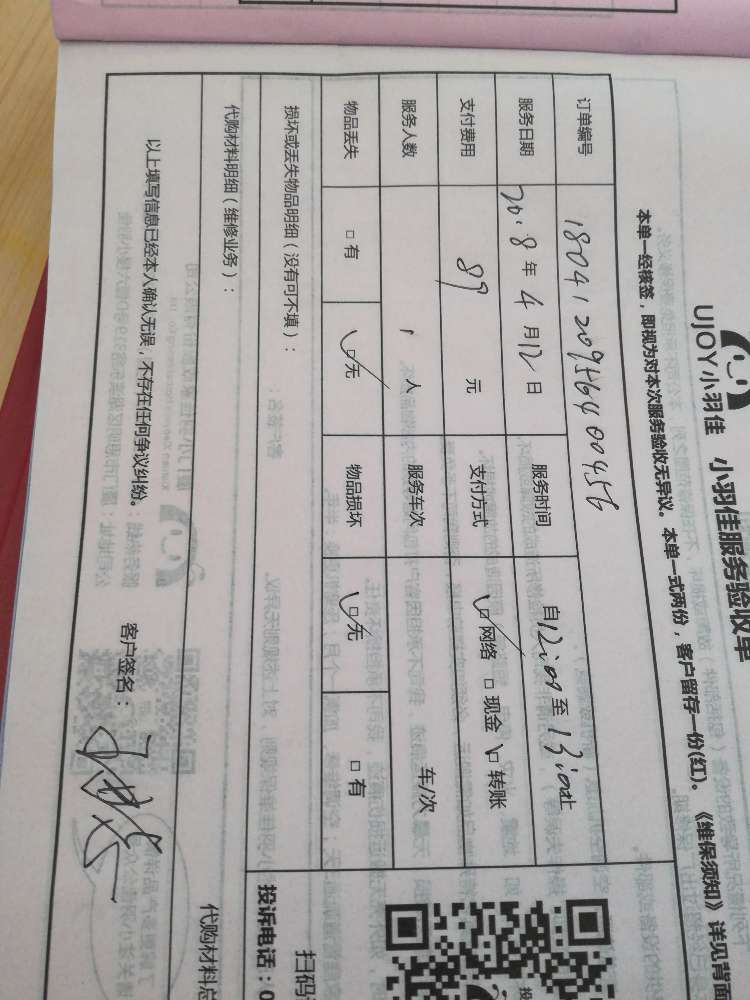 UJOY小羽佳 小羽佳服务验收单
本单一经核签，即视为对本次服务验收无异议。本单一式两份，客户留存一份(红)。《维保须知》详见背面
订单编号 1804120956400456
服务日期 2018年4月12日 服务时间 自12:00至13:00止
支付费用 89 元 支付方式 □网络 □现金 □转账
服务人数 1 人 服务车次 车/次
物品丢失 □有 □无 物品损坏 □无 □有
损坏或丢失物品明细（没有可不填）：
投诉电话：0
扫码
代购材料明细（维修业务）：
代购材料总
以上填写信息已经本人确认无误，不存在任何争议纠纷。 客户签名：